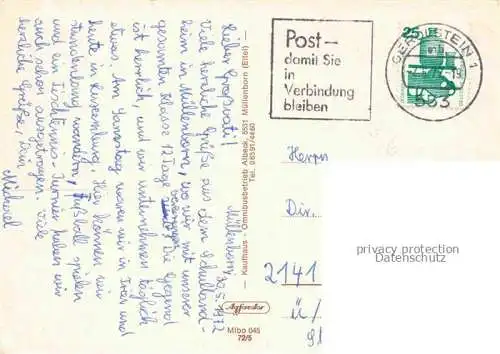 Müllenborn,
30.5.1972
Lieber Großvati!
Viele herzliche Grüße aus dem Schulland-
heim in Müllenborn, wo wir mit unserer
gesamten Klasse 12 Tage verbringen. Die Gegend
ist herrlich, und wir unternehmen täglich
etwas. Am Samstag waren wir in Trier und
heute in Luxemburg. Hier können wir
stundenlang wandern, Fußball spielen
und ein Tischtennis-Turnier haben wir
auch schon ausgetragen. Viele
herzliche Grüße, Dein
Michael
— Kaufhaus - Omnibusbetrieb Albeck, 5531 Müllenborn (Eifel) —
Tel. 06591/4460
Agfacolor
Mibo 045
72/5
Post–
damit Sie
in
Verbindung
bleiben
GEROLSTEIN 1
553
25
Herrn
Dir.
privacy protection
Datenschutz
2141
Ü/
91